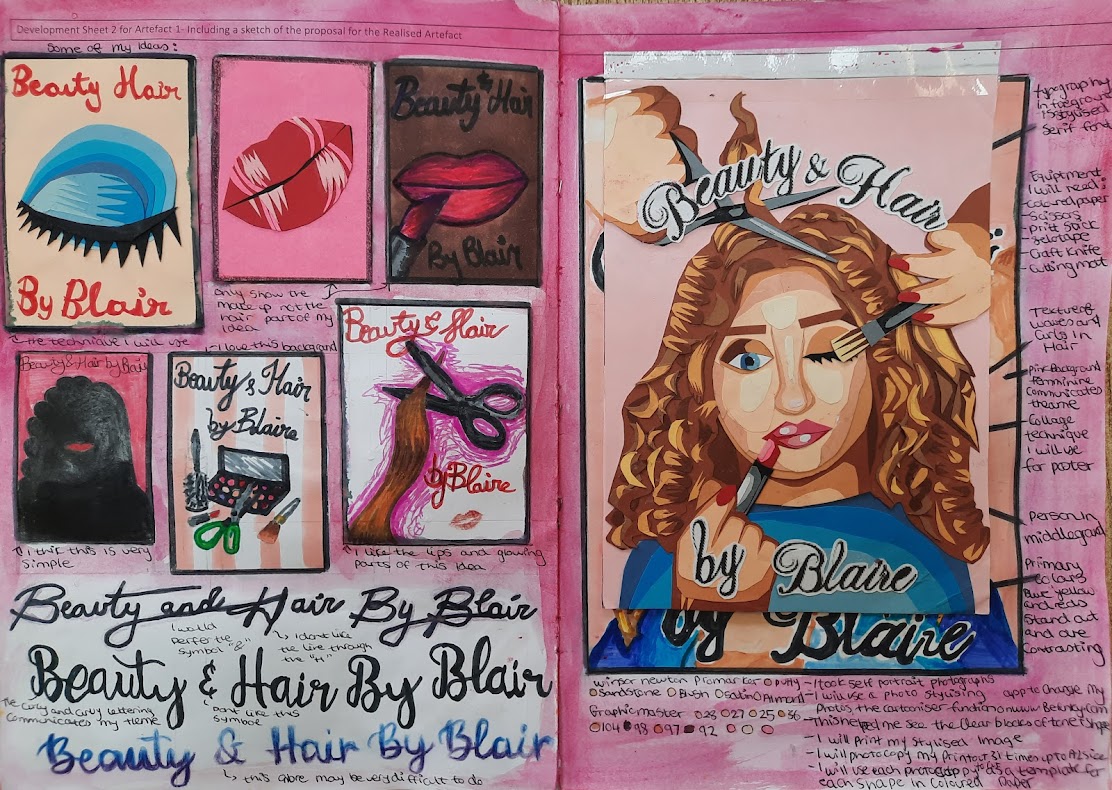 Development Sheet 2 for Artefact 1- Including a sketch of the proposal for the Realised Artefact
Some of my Ideas:
Beauty Hair
By Blair
Beauty & Hair
By Blair
only show the
make up not the
hair part of my
Idea
The technique I will use
Beauty & Hair by Blair
I thik this is very
simple
I love this background
Beauty & Hair
by Blaire
Beauty & Hair
by Blaire
I like the lips and growing
parts of this idea
Beauty and Hair By Blair
I would
perfer the
symbol "&"
I dont like
the line through
the "H"
Beauty & Hair By Blair
The curly and curvy lettering
communicates my theme
Dont like this
symbol
Beauty & Hair By Blair
this ombre may be very difficult to do
Beauty & Hair
by Blaire
by Blaire
typography
in foreground
is stylised
Serif font
Equiptment
I will need:
-Coloured paper
-Scissors
-Pritt Stick
-Selotape
-Craft Knife
-Cutting mat
Texture of
waves and
Curls in
Hair
Pink Background
femminine
communicates
theame
Collage
technique
I will use
for poster
Person In
middleground
Primary
colours
Blue, yellow
and reds
Stand out
and are
contrasting
winsor newton Promarker Putty
Sandstone Blush Satin Almond
Graphicmaster 028 27 25 36
104 98 97 92
-I took self portrait photographs
-I will use a photo stylising app to change my
photos the cartoniser function on www.BeFunky.com
This helped me see the clear blocks of tone & shape
-I will print my stylised image
-I will photocopy my printout 31 times up to A2 size
-I will use each photocopy as a template for
each shape in coloured paper